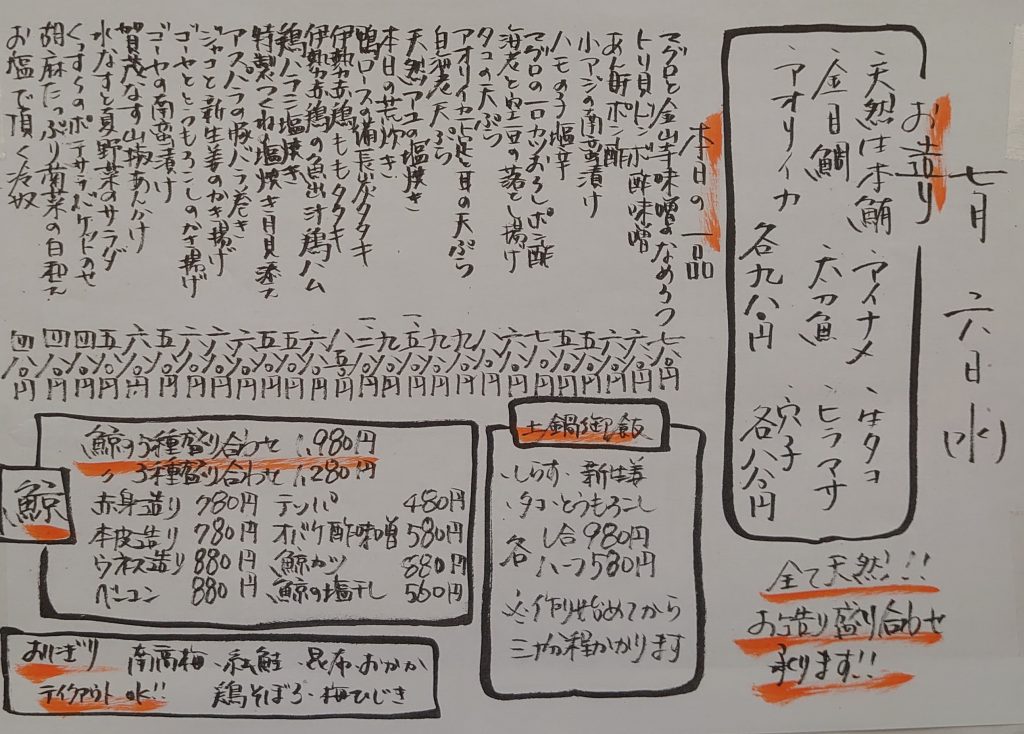 七月 六日 水
お造り
・天然生本鮪 ・アイナメ ・生タコ
・金目鯛 ・太刀魚 ・ヒラマサ
・アオリイカ ・穴子
各九八〇円 各八八〇円
全て天然!!
お造り盛り合わせ
承ります!!
本日の一品
マグロと金山寺味噌のなめろう 七八〇円
トリ貝トンボ酢味噌 六八〇円
あん肝ポン酢 六八〇円
小アジの南蛮漬け 五八〇円
ハモの子塩辛 五八〇円
マグロの一口カツおろしポン酢 七八〇円
海老と空豆の落とし揚げ 六八〇円
タコの天ぷら 八八〇円
アオリイカと大葉の天ぷら 九八〇円
白海老天ぷら 九八〇円
天然アユの塩焼き
本日の荒炊き 九八〇円
鴨ロースの備長炭タタキ
伊勢赤鶏ももタタキ 八五〇円
伊勢赤鶏の魚出汁鶏ハム 六八〇円
鶏ハラミ塩焼き 五八〇円
特製つくね塩焼き月見添え 五八〇円
アスパラの豚バラ巻き 六八〇円
ジャコと新生姜のかき揚げ 六八〇円
ゴーヤととうもろこしのかき揚げ 六八〇円
ゴーヤの南蛮漬け 五八〇円
賀茂なす山椒あんかけ 六八〇円
水なすと夏野菜のサラダ 五八〇円
くんすくのポテサラバゲットのせ 四八〇円
胡麻たっぷり青菜の白和え 四八〇円
お塩で頂く冷奴 四八〇円
土鍋御飯
・しらす・新生姜
・タコ・とうもろこし
各 1合 980円
ハーフ 580円
※作り始めてから
三十分程かかります
鯨
鯨の5種盛り合わせ 1,980円
〃 3種盛り合わせ 1,280円
赤身造り 780円 テッパ 480円
本皮造り 780円 オバケ酢味噌 580円
ウネス造り 880円 鯨カツ 880円
ベーコン 880円 鯨の塩干し 560円
おにぎり 南高梅・紅鮭・昆布・おかか
テイクアウトOK!! 鶏そぼろ・梅ひじき